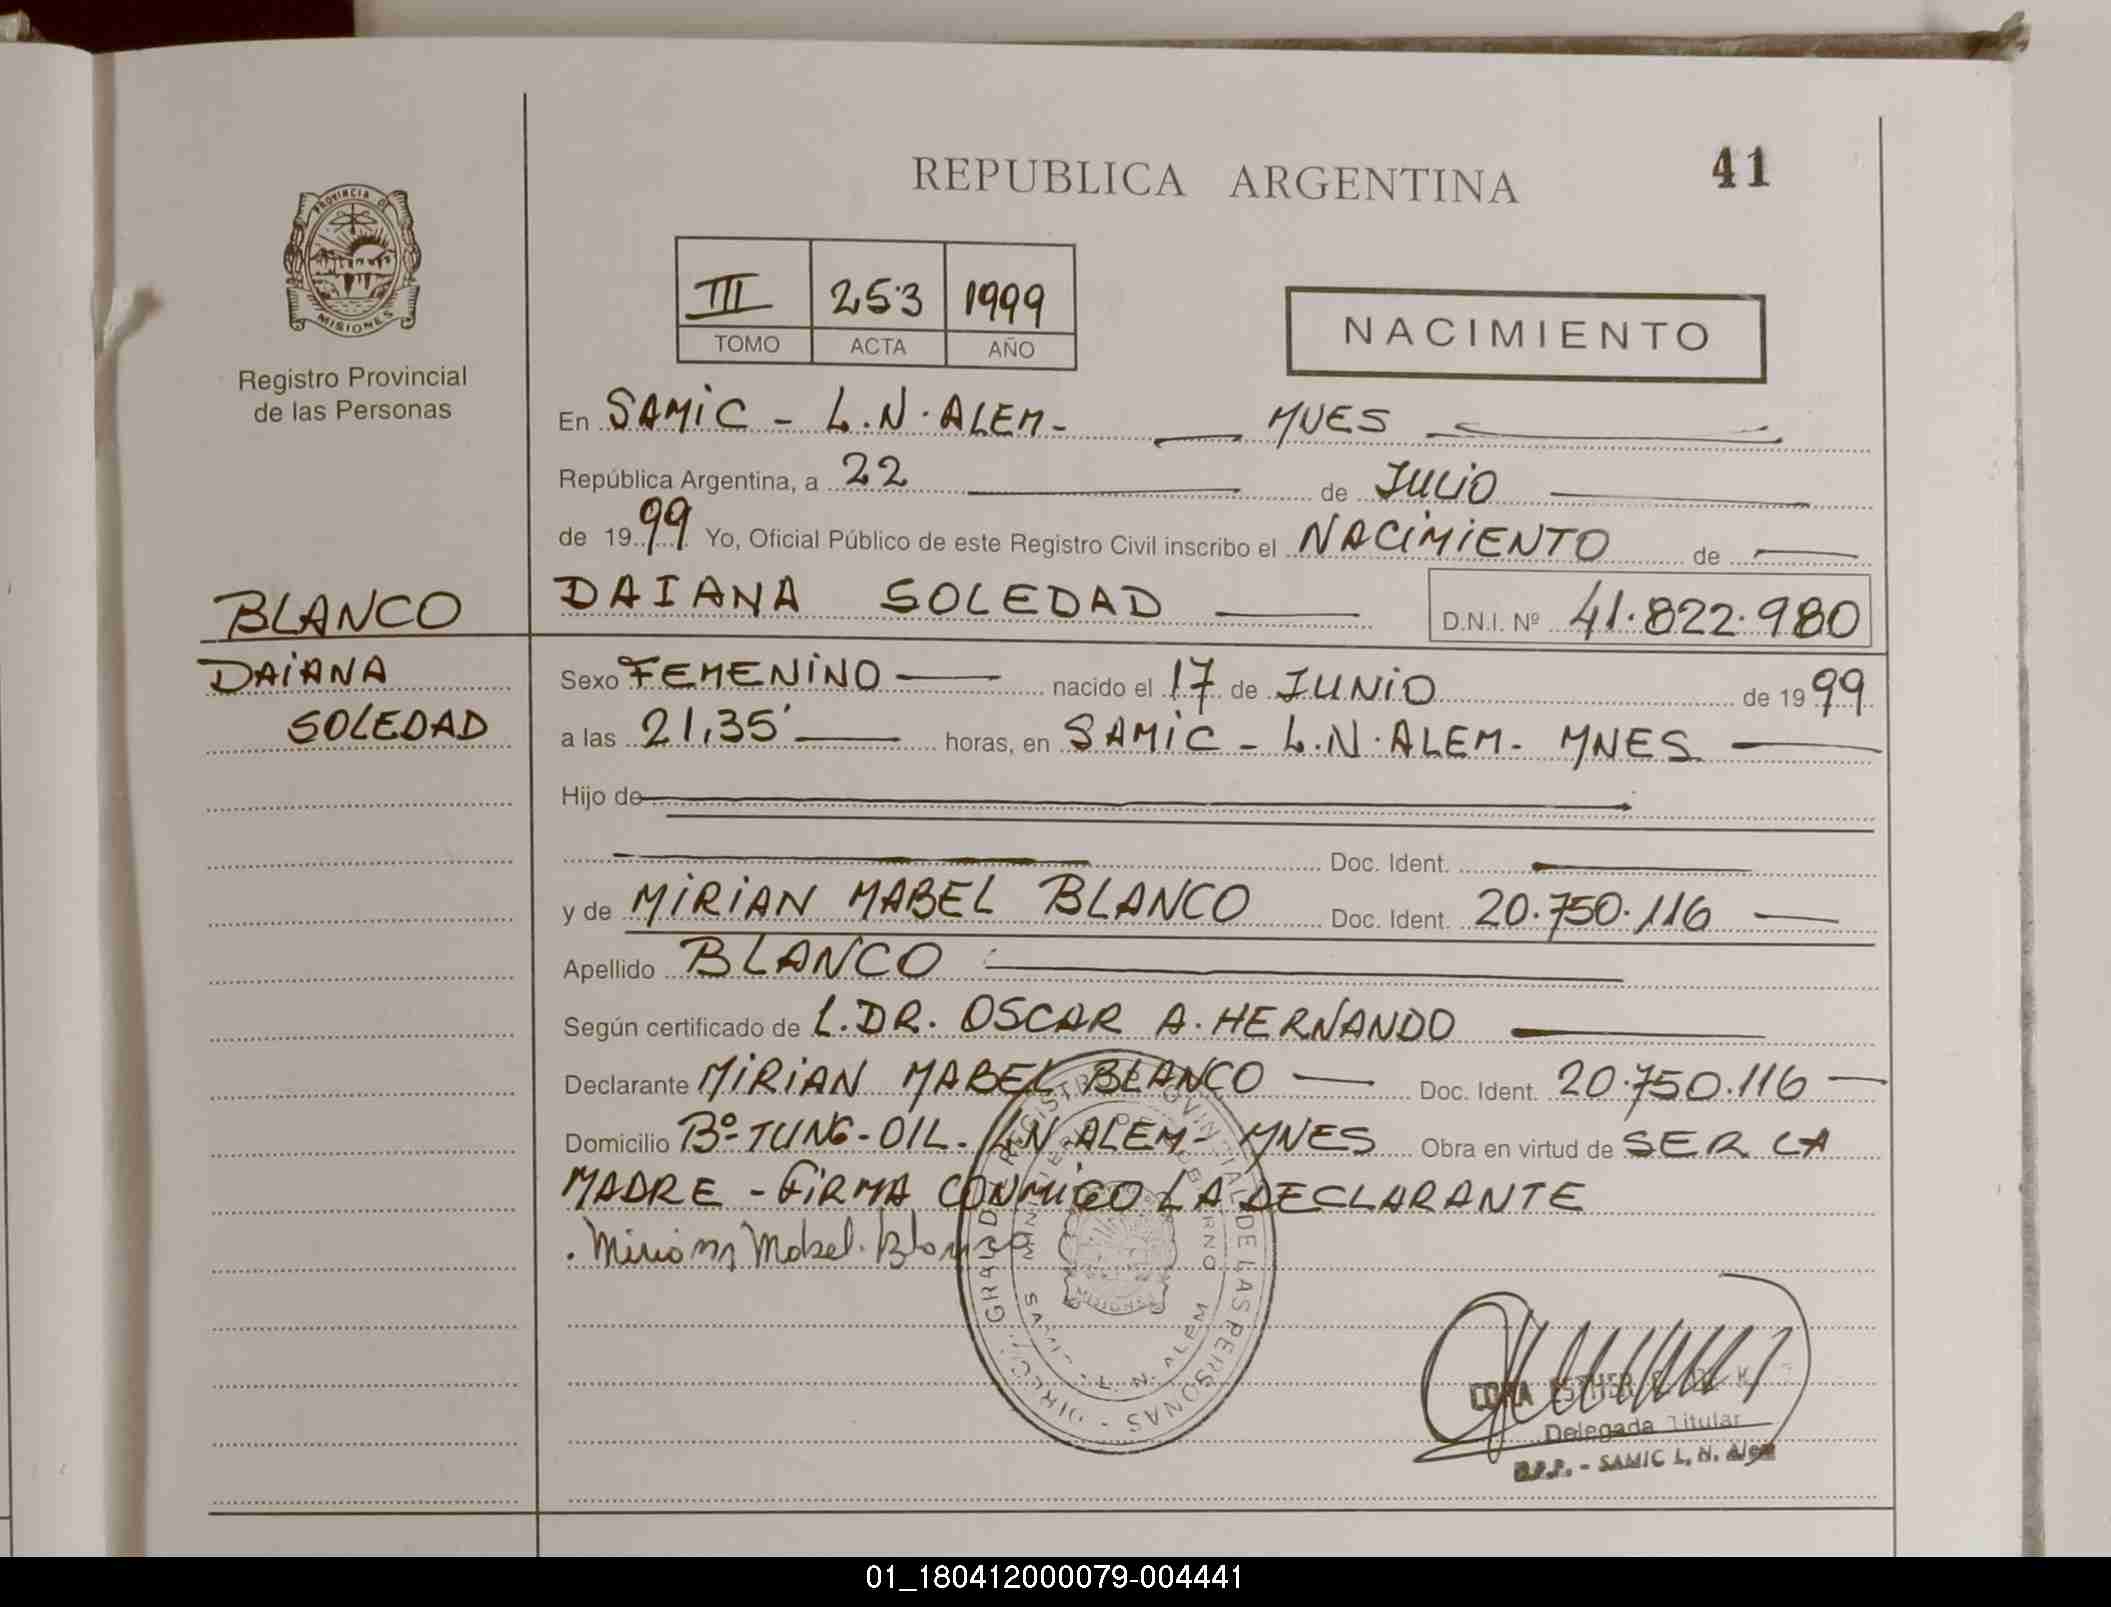 REPUBLICA ARGENTINA
41
PROVINCIA DE
MISIONES
Registro Provincial
de las Personas
III 253 1999
TOMO ACTA AÑO
NACIMIENTO
En SAMIC - L.N. ALEM - MNES
República Argentina, a 22 de JULIO
de 1999 Yo, Oficial Público de este Registro Civil inscribo el NACIMIENTO de
DAIANA SOLEDAD D.N.I. Nº 41.822.980
BLANCO
DAIANA
SOLEDAD
Sexo FEMENINO nacido el 17 de JUNIO de 1999
a las 21,35' horas, en SAMIC - L.N. ALEM - MNES
Hijo de
Doc. Ident.
y de MIRIAN MABEL BLANCO Doc. Ident. 20.750.116
Apellido BLANCO
Según certificado de L.DR. OSCAR A. HERNANDO
Declarante MIRIAN MABEL BLANCO Doc. Ident. 20.750.116
Domicilio Bº TUNG-OIL - L.N. ALEM - MNES Obra en virtud de SER LA
MADRE - FIRMA CONMIGO LA DECLARANTE
Mirian Mabel Blanco
REGISTRO PROVINCIAL DE LAS PERSONAS
MINISTERIO DE GOBIERNO
MISIONES
SAMIC L. N. ALEM
ESTHER
Delegada Titular
- SAMIC L. N. Alem
01_180412000079-004441